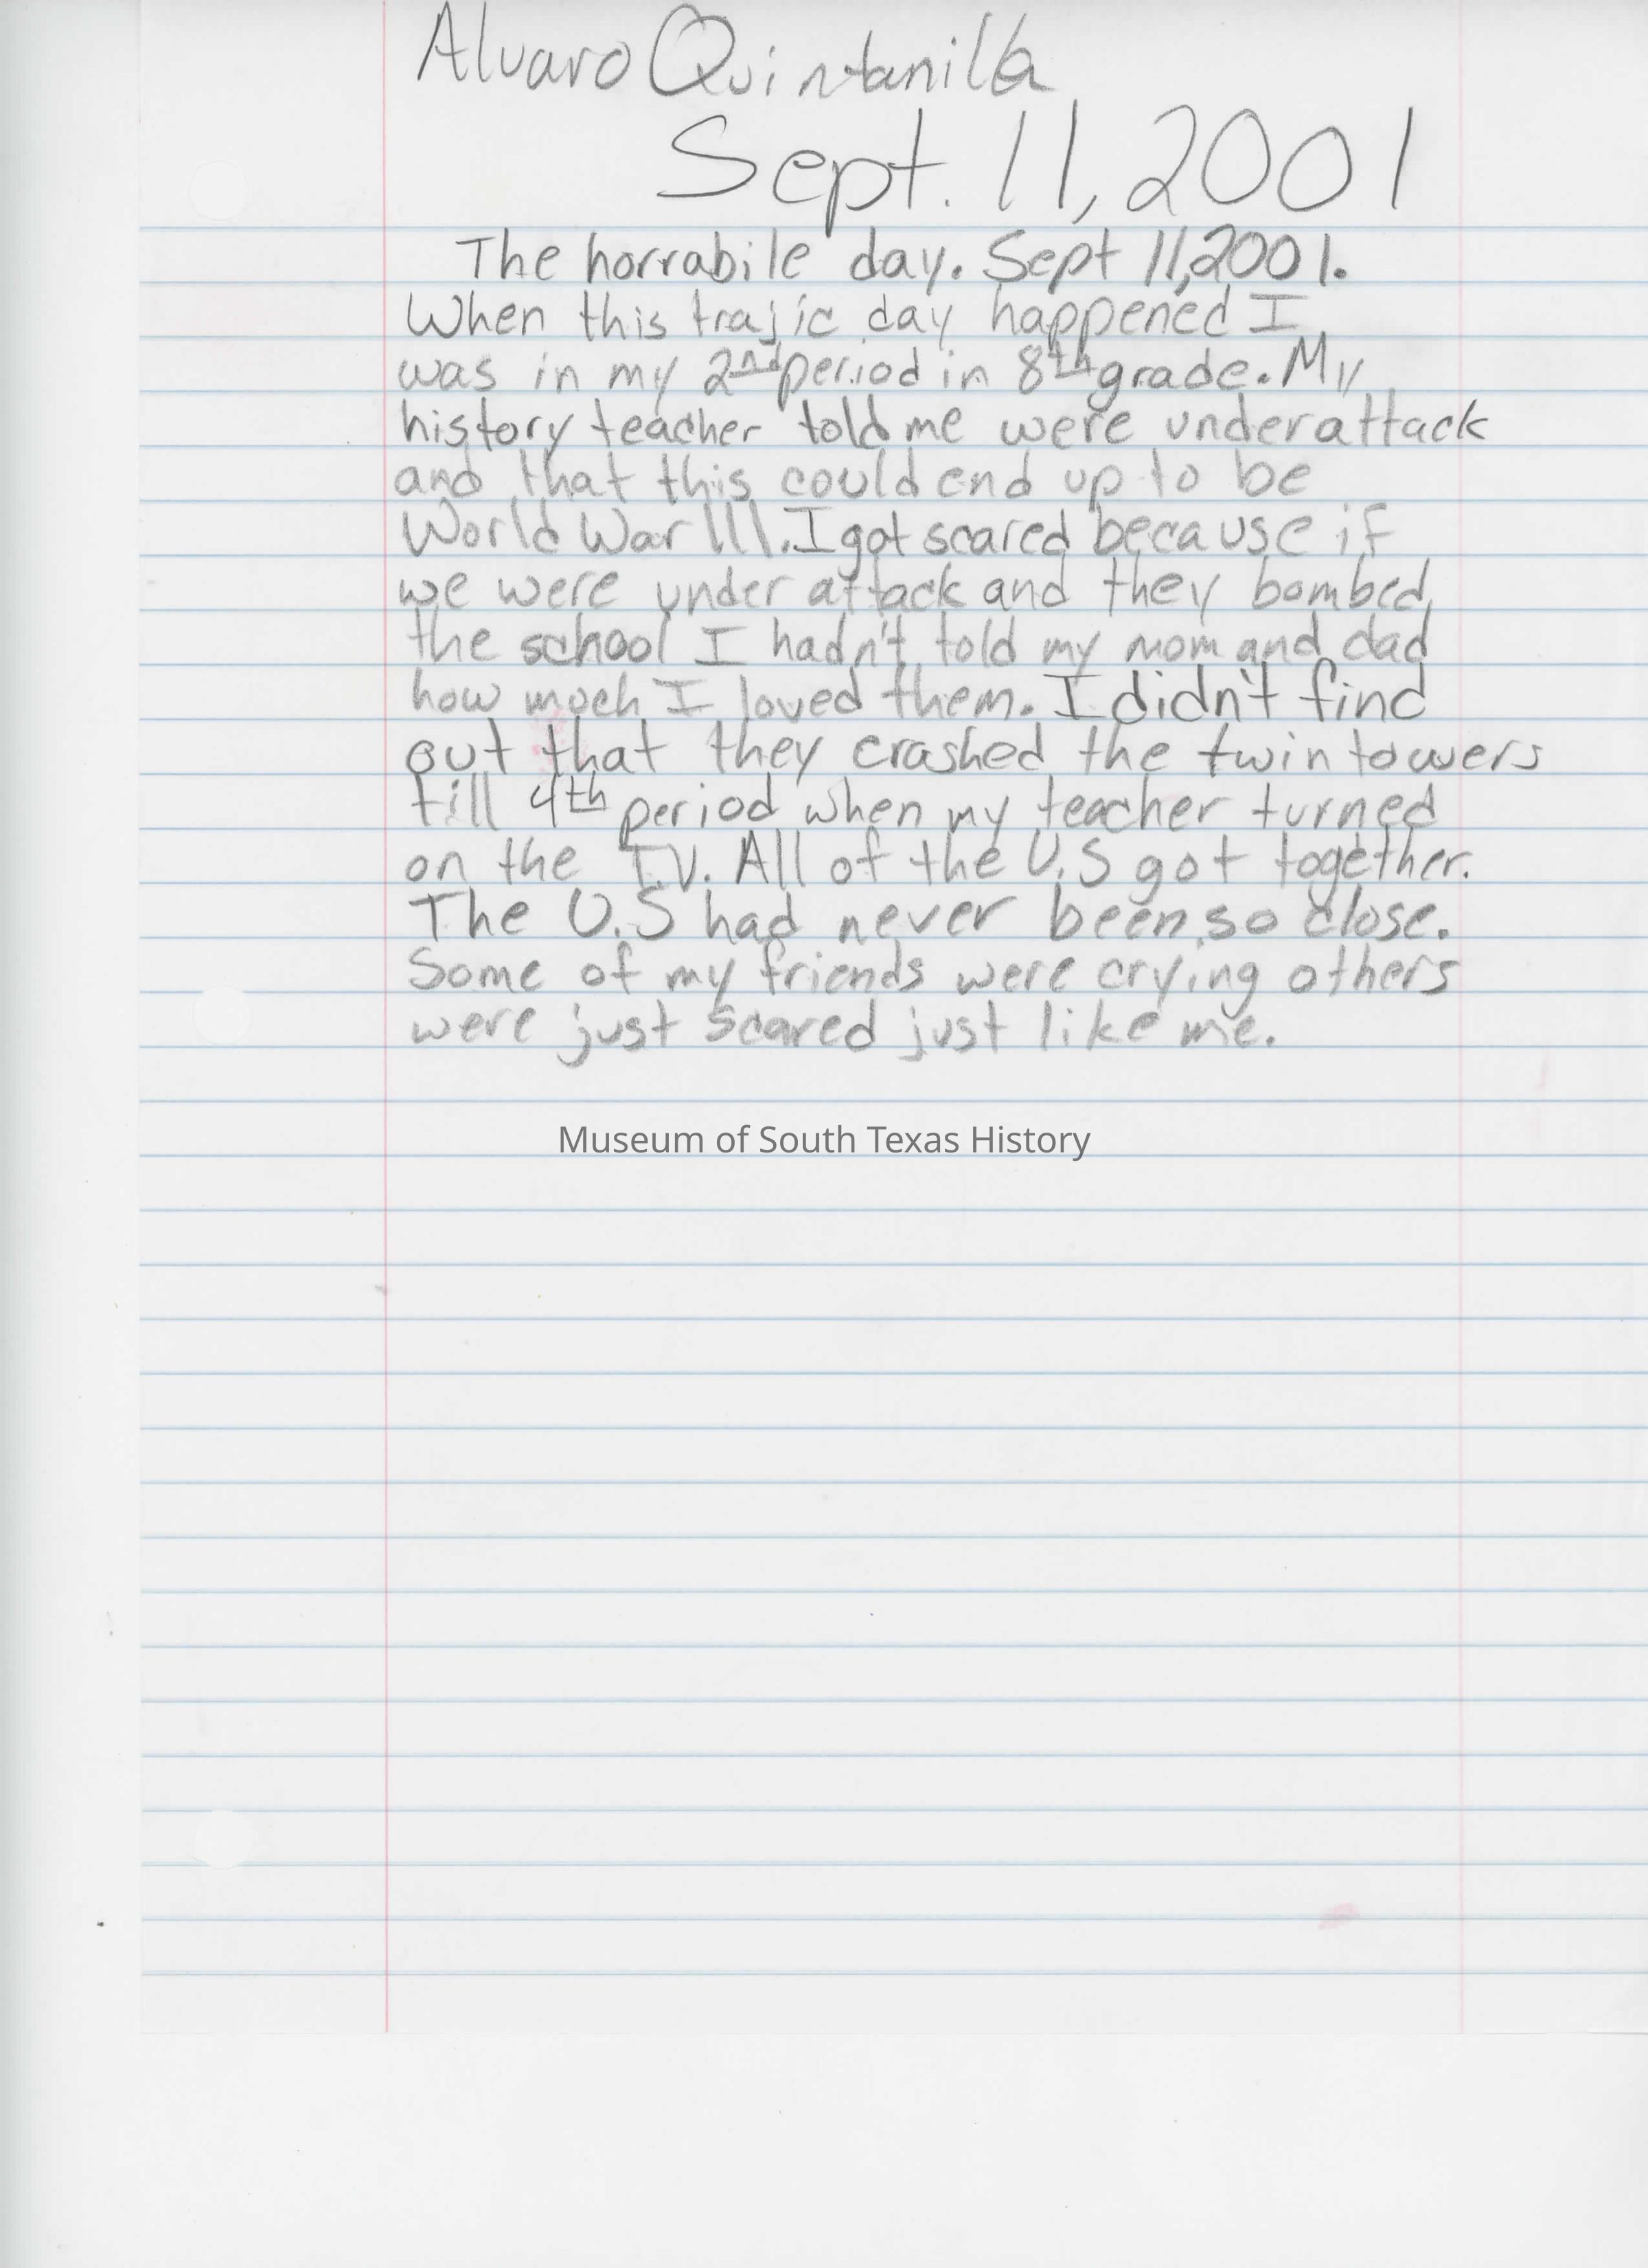 Alvaro Quintanilla
Sept. 11, 2001
The horrabile day. Sept 11, 2001.
When this trajic day happened I
was in my 2nd period in 8th grade. My
history teacher told me were under attack
and that this could end up to be
World War III. I got scared because if
we were under attack and they bombed
the school I hadn't told my mom and dad
how much I loved them. I didn't find
out that they crashed the twin towers
till 4th period when my teacher turned
on the T.V. All of the U.S got together.
The U.S had never been so close.
Some of my friends were crying others
were just scared just like me.
Museum of South Texas History